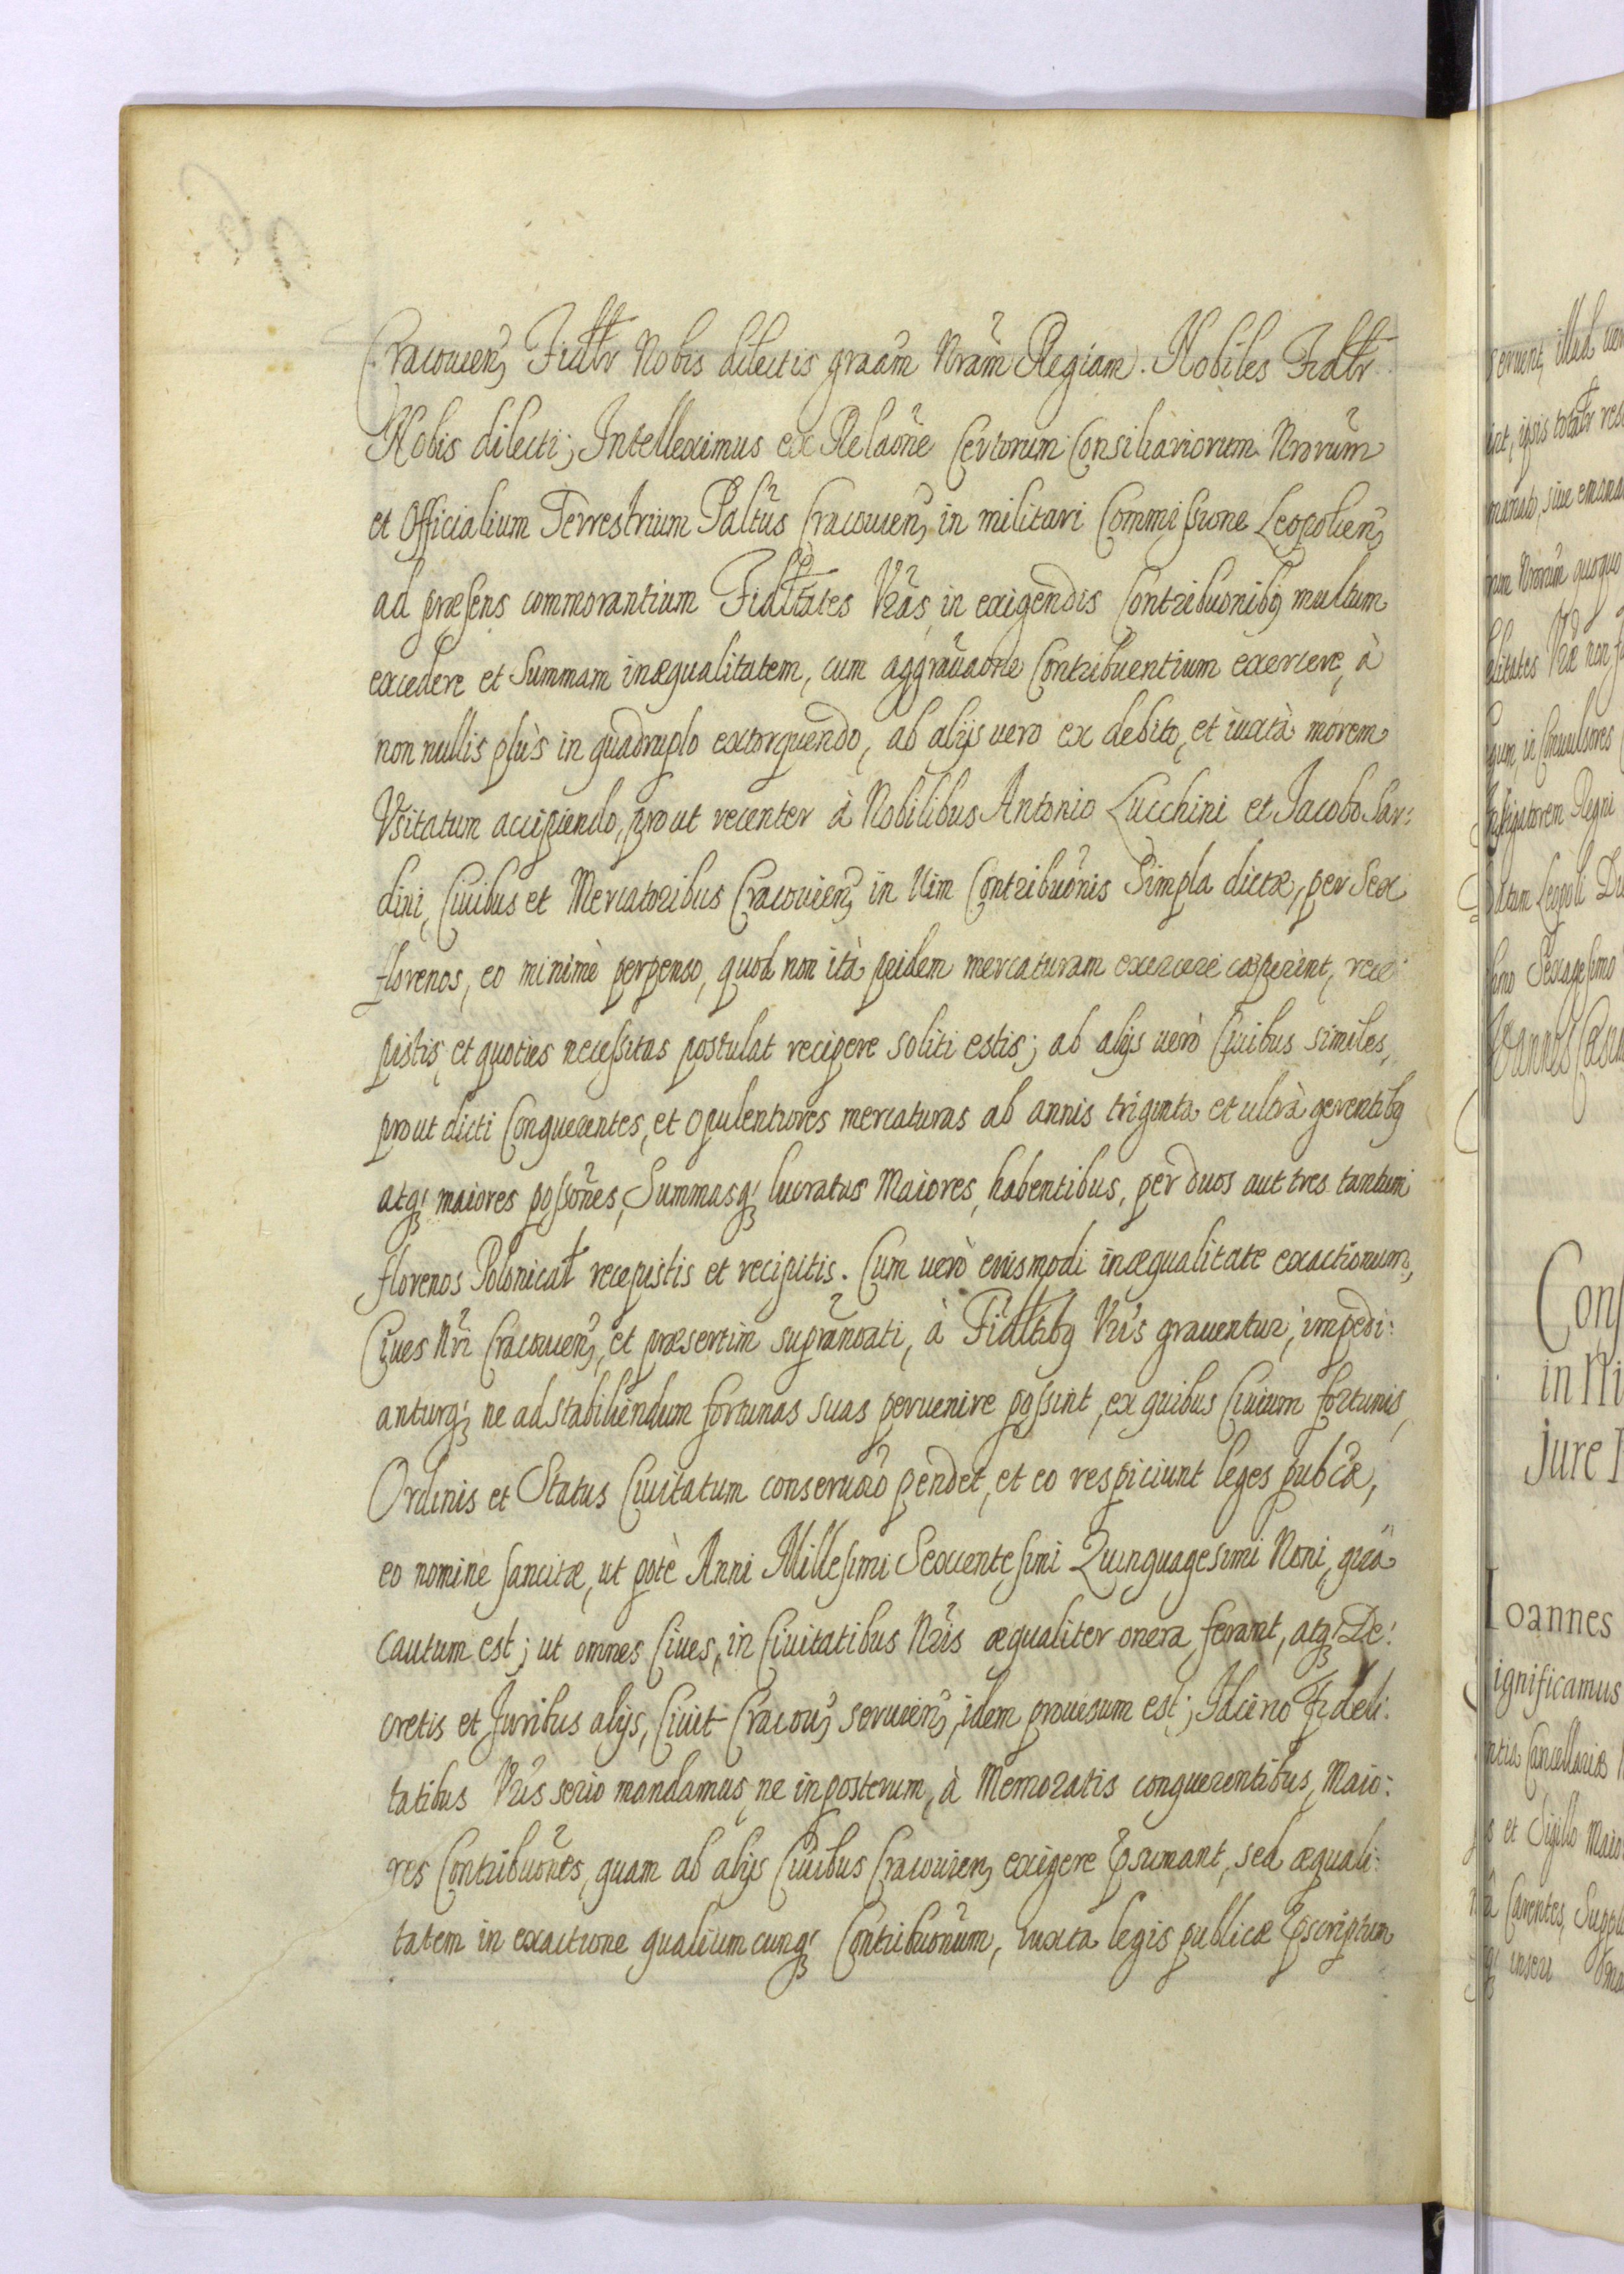 Cracovien, Fidltr Nobis dilectis graãm Nrãm Regiam. Nobiles Fidltr
Nobis dilecti; Intelleximus ex Relaõne Certorum Consiliariorum Nrorũm
et Officialium Terrestrium Paltũs Cracovien, in militari Commissione Leopolien,
ad præsens commorantium Fidltates Vrãs, in exigendis Contribuonibq multum
excedere et Summam inæqualitatem, cum aggravaõne Contribuentium exercere, à
non nullis plùs in quadruplo extorquendo, ab alijs vero ex debito, et iuxtà morem
Vsitatum accipiendo, prout recenter à Nobilibus Antonio Lucchini et Jacobo Sar:
dini, Civibus et Mercatoribus Cracovien, in Vim Contribuõnis Simpla dictæ, per Sex
florenos, eo minimè perpenso, quod non ità pridem mercaturam exercere cæperint, rece:
pistis, et quoties necessitas postulat recipere soliti estis; ab alijs verò Civibus similes,
prout dicti Conquerentes, et opulentiores mercaturas ab annis triginta et ultrà gerentibq
atq; maiores possõnes, Summasq; lucratas Maiores, habentibus, per duos aut tres tantum
florenos Polonicał recepistis et recipitis. Cum verò eiusmodi inæqualitate exactionum,
Cives Nri Cracovien, et præsertim supranoati, à Fidltibq Vris graventur, impedi:
anturq; ne ad stabiliendum fortunas suas pervenire possint, ex quibus Civium fortunis,
Ordinis et Status Civitatum conservaõ pendet, et eo respiciunt leges pubcæ,
eo nomine sancitæ, ut potè Anni Millesimi Sexcentesimi Quinquagesimi Noni, quã
cautum est; ut omnes Cives, in Civitatibus Nris æqualiter onera ferant, atq; De:
cretis et Juribus alijs, Civit Cracov, servien, idem provisum est; Idcirco Fideli:
tatibus Vris serio mandamus, ne inposterum, à Memoratis conquerentibus, Maio:
res Contribuõnes, quam ab alijs Civibus Cracovien, exigere p̃sumant, sed æquali:
tatem in exactione qualiumcunq; Contribuonũm, iuxta legis publicæ p̃scriptum